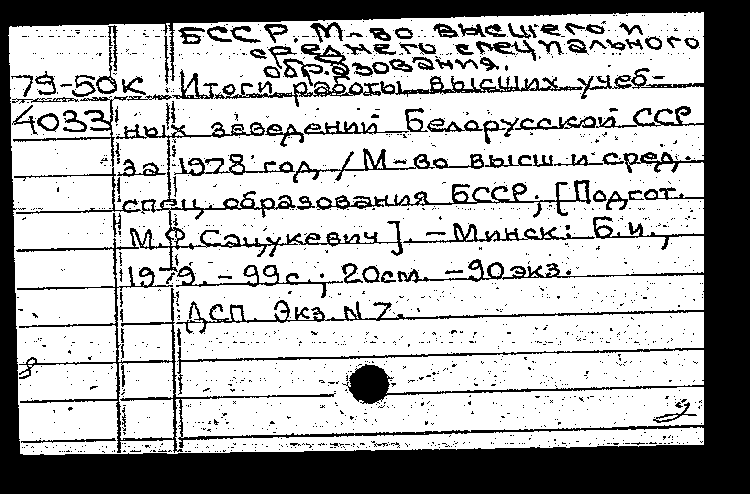 БССР. М-во высшего и
среднего специального
образования.
79-50к Итоги работы высших учеб-
4033 ных заведений Белорусской ССР
за 1978 год, / М-во высш. и сред.
спец. образования БССР; [Подгот.
М.Ф.Сацукевич]. — Минск: Б.и.,
1979. - 99с.; 20см. - 90экз.
ДСП. Экз. N 7.